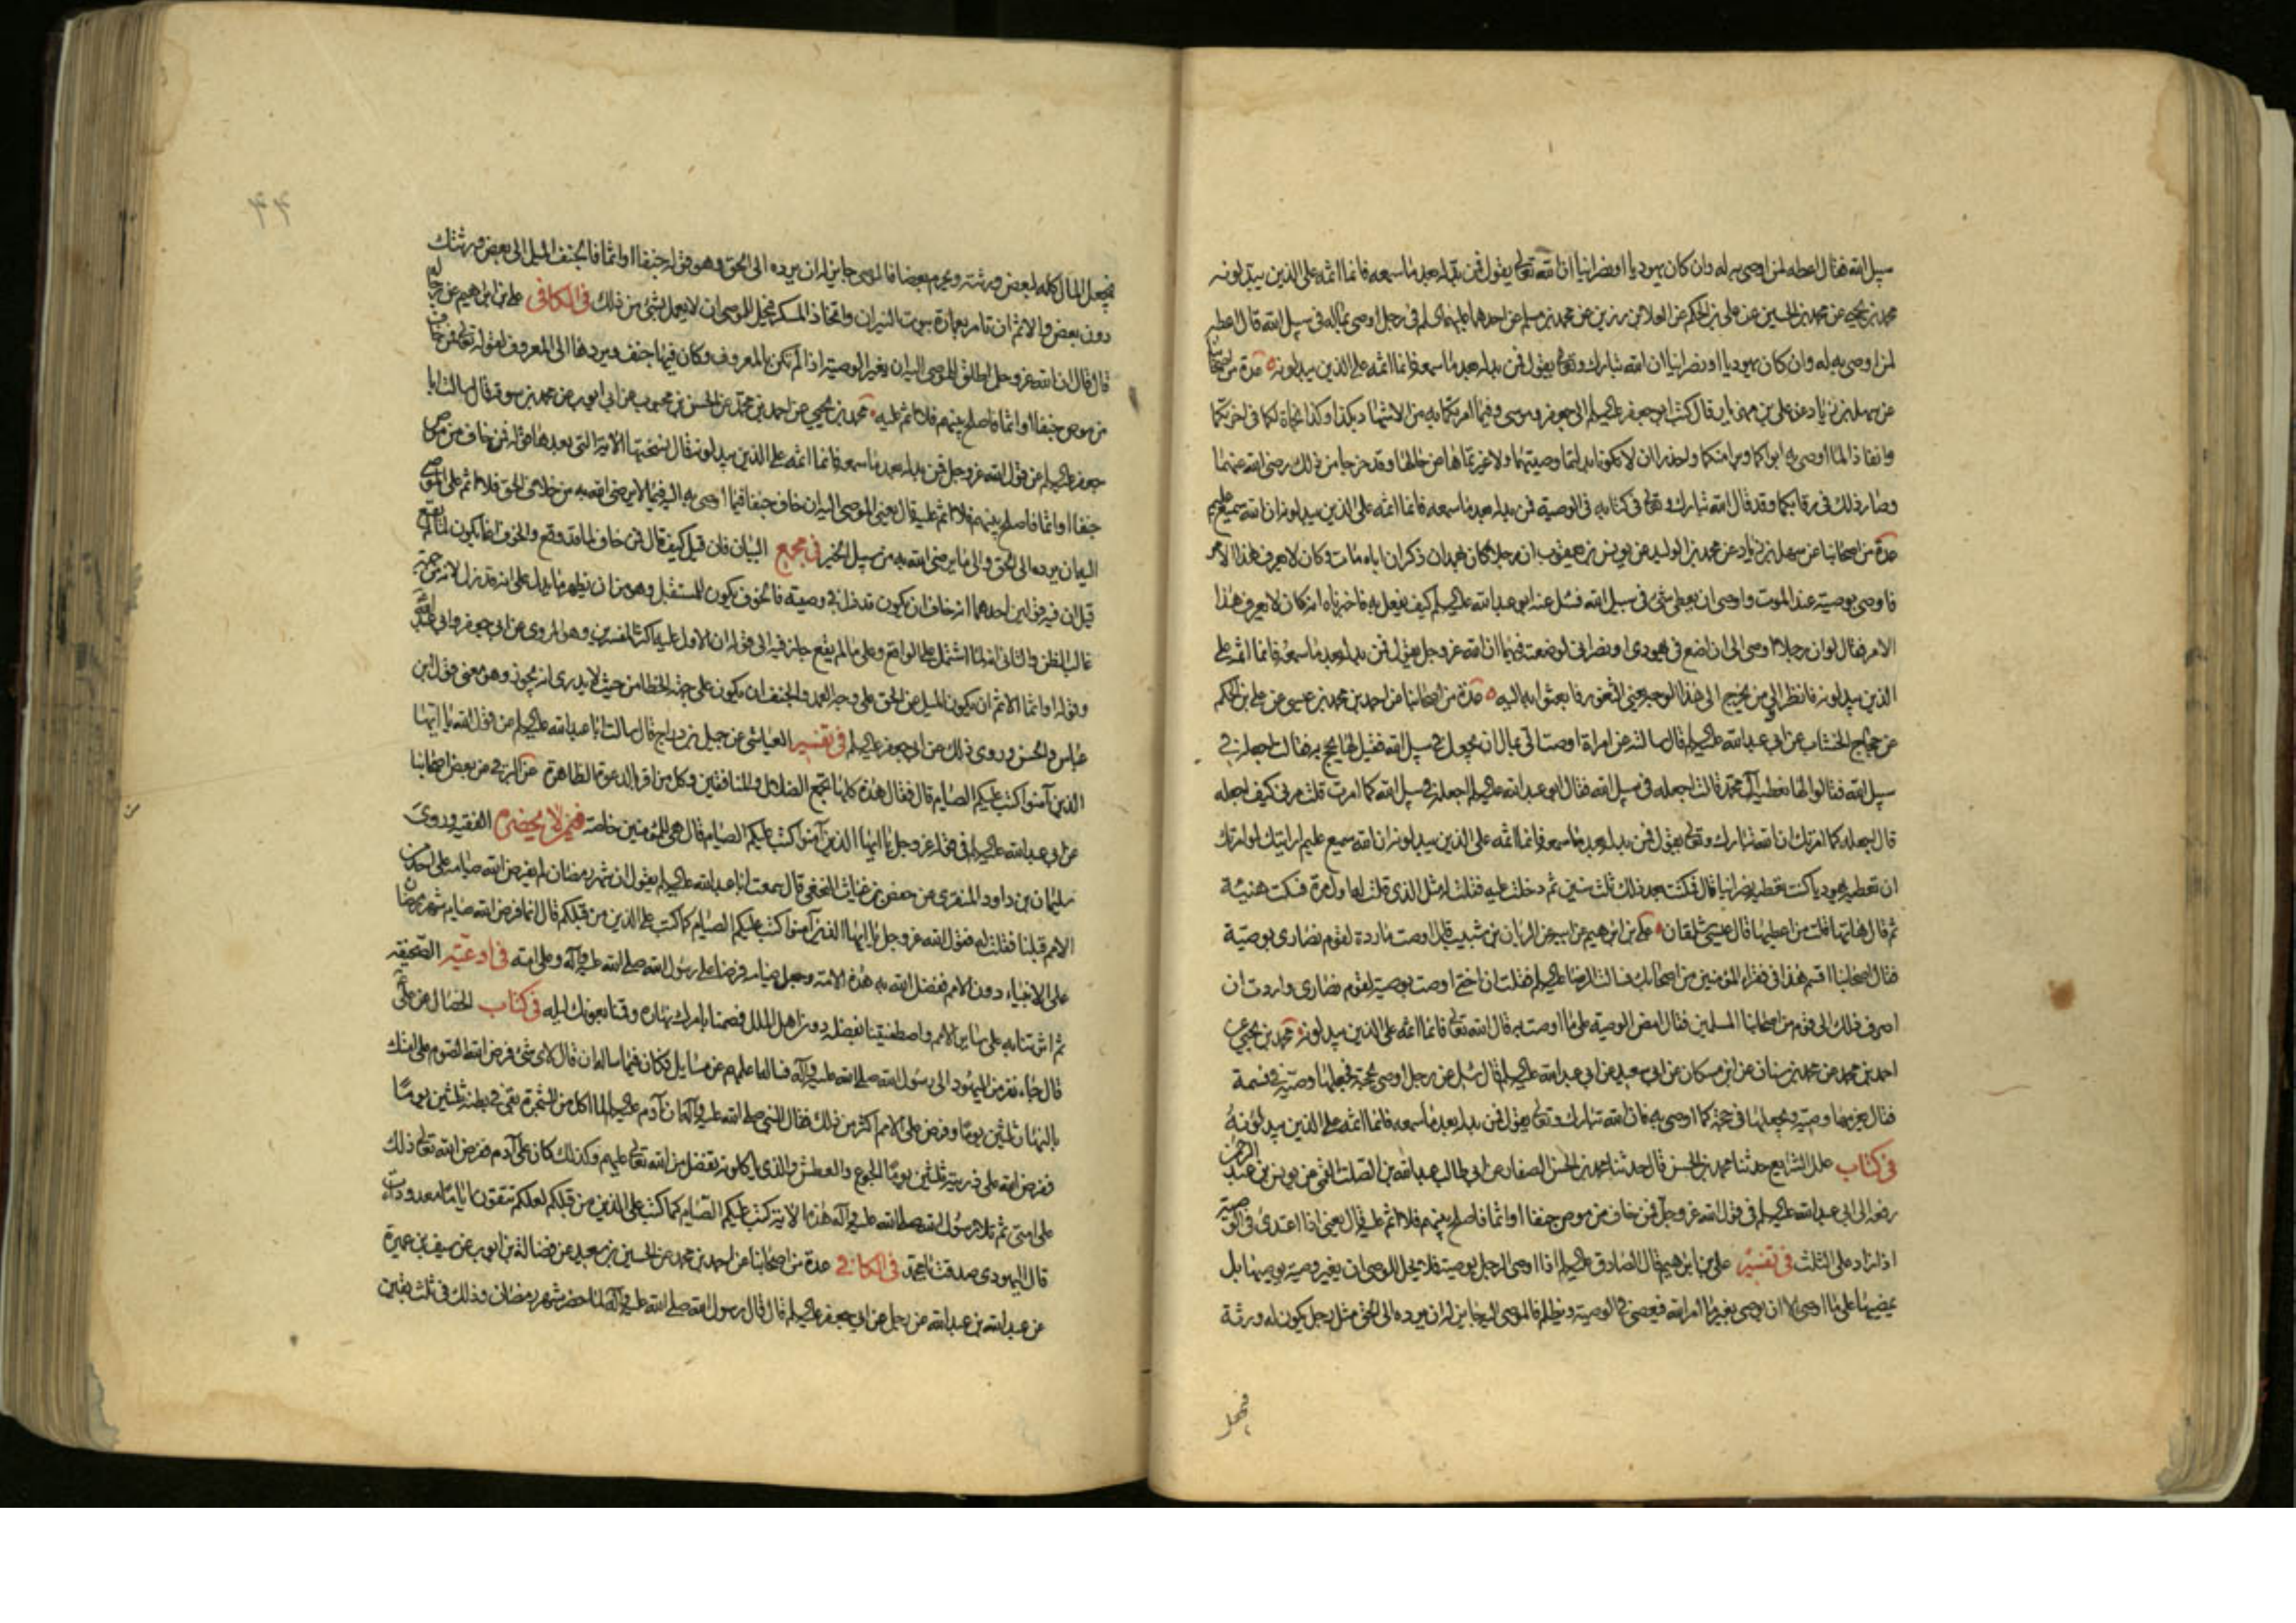 سبيل الله فقال اعطه لمن اوصى به له وان كان يهوديا او نصرانيا ان الله تعالى يقول فمن بدله بعد ما سمعه فانما اثمه على الذين يبدلونه
محمد بن يحيى عن محمد بن الحسين عن على بن الحكم عن العلا بن رزين عن محمد بن مسلم عن احدهما عليهما السلم فى رجل اوصى بماله فى سبيل الله قال اعطه
لمن اوصى به له وان كان يهوديا او نصرانيا ان الله تبارك وتعالى يقول فمن بدله بعد ما سمعه فانما اثمه على الذين يبدلونه عدة من اصحابنا
عن سهل بن زياد عن على بن مهزيار قال كتب ابو جعفر عليه السلم الى جعفر وموسى وفيما امرتكما به من الاشهاد بكذا وكذا نجاة لكما فى اخرتكما
وانفاذ لما اوصى به ابواكما وبرا منكما واحذرا ان لا تكونا بدلتما وصيتهما ولا غيرتماها عن حالها وقد خرجا من ذلك رضى الله عنهما
وصار ذلك فى رقابكما وقد قال الله تبارك وتعالى فى كتابه فى الوصية فمن بدله بعد ما سمعه فانما اثمه على الذين يبدلونه ان الله سميع عليم
عدة من اصحابنا عن سهل بن زياد عن محمد بن الوليد عن يونس بن يعقوب ان رجلا كان بهمدان ذكر ان اباه مات وكان لا يعرف هذا الامر
فاوصى بوصيته عند الموت واوصى ان يعطى شئ فى سبيل الله فسئل عنه ابو عبد الله عليه السلم كيف يفعل به فاخبرناه انه كان لا يعرف هذا
الامر فقال لو ان رجلا اوصى الى ان اضع فى يهودى او نصرانى لوضعته فيهما ان الله عز وجل يقول فمن بدله بعد ما سمعه فانما اثمه على
الذين يبدلونه فانظر الى من يخرج الى هذا الوجه يعنى الثغور فابعثوا به اليه عدة من اصحابنا عن احمد بن محمد بن عيسى عن على بن الحكم
عن حجاج الخشاب عن ابى عبد الله عليه السلم قال سالته عن امراة اوصت الى بمال ان يجعل فى سبيل الله فقيل لها يحج به فقالت اجعله فى
سبيل الله فقالوا لها نعطيه آل محمد قالت اجعله فى سبيل الله فقال ابو عبد الله عليه السلم اجعله فى سبيل الله كما امرت قلت مرنى كيف اجعله
قال اجعله كما امرتك ان الله تبارك وتعالى يقول فمن بدله بعد ما سمعه فانما اثمه على الذين يبدلونه ان الله سميع عليم ارايتك لو امرتك
ان تعطيه يهوديا كنت تعطيه نصرانيا قال فمكثت بعد ذلك ثلث سنين ثم دخلت عليه فقلت له مثل الذى قلت له اول مرة فسكت هنيئة
ثم قال هاتها قلت من اعطيها قال عيسى شلقان على بن ابرهيم عن ابيه عن الريان بن شبيب قال اوصت ماردة لقوم نصارى بوصية
فقال اصحابنا اقسم هذا فى فقراء المؤمنين من اصحابك فسالت الرضا عليه السلم فقلت ان اختى اوصت بوصية لقوم نصارى واردت ان
اصرف ذلك الى قوم من اصحابنا المسلمين فقال امض الوصية على ما اوصت به قال الله تعالى فانما اثمه على الذين يبدلونه محمد بن يحيى عن
احمد بن محمد عن محمد بن سنان عن ابن مسكان عن ابى سعيد عن ابى عبد الله عليه السلم قال سئل عن رجل اوصى بحجة فجعلها وصيه فى نسمة
فقال يغرمها وصيه ويجعلها فى حجة كما اوصى به فان الله تبارك وتعالى يقول فمن بدله بعد ما سمعه فانما اثمه على الذين يبدلونه
فى كتاب علل الشرايع حدثنا محمد بن الحسن قال حدثنا محمد بن الحسن الصفار عن ابى طالب عبد الله بن الصلت القمى عن يونس بن عبد الرحمن
رفعه الى ابى عبد الله عليه السلم فى قول الله عز وجل فمن خاف من موص جنفا او اثما فاصلح بينهم فلا اثم عليه قال يعنى اذا اعتدى فى الوصية
اذا زاد على الثلث فى تفسير على بن ابرهيم قال الصادق عليه السلم اذا اوصى الرجل بوصية فلا يحل للوصى ان يغير وصية يوصيها بل
يمضيها على ما اوصى الا ان يوصى بغير ما امر الله فيعصى فى الوصية ويظلم فالموصى اليه جايز له ان يرده الى الحق مثل رجل يكون له ورثة
فيجعل
٤٤
فيجعل المال كله لبعض ورثته ويحرم بعضا فالموصى جايز له ان يرده الى الحق وهو قوله جنفا او اثما فالجنف الميل الى بعض ورثتك
دون بعض والاثم ان تامر بعمارة بيوت النيران واتخاذ المسكر فيحل للوصى ان لا يعمل بشئ من ذلك فى الكافى على بن ابرهيم عن رجاله
قال قال ان الله عز وجل اطلق للموصى اليه ان يغير الوصية اذا لم تكن بالمعروف وكان فيها جنف ويردها الى المعروف لقوله تعالى فمن خاف
من موص جنفا او اثما فاصلح بينهم فلا اثم عليه محمد بن يحيى عن احمد بن محمد عن الحسن بن محبوب عن ابى ايوب عن محمد بن سوقه قال سالت ابا
جعفر عليه السلم عن قول الله عز وجل فمن بدله بعد ما سمعه فانما اثمه على الذين يبدلونه قال نسختها الاية التى بعدها قوله فمن خاف من موص
جنفا او اثما فاصلح بينهم فلا اثم عليه قال يعنى الموصى اليه ان خاف جنفا فيما اوصى به اليه فيما لا يرضى الله به من خلاف الحق فلا اثم على الموصى
اليه ان يرده الى الحق والى ما يرضى الله به من سبيل الخير فى مجمع البيان فان قيل كيف قال فمن خاف لما قد وقع والخوف انما يكون لما لم يقع
قيل ان فيه قولين احدهما انه خاف ان يكون قد زل فى وصيته فالخوف يكون للمستقبل وهو من ان يظهر ما يدل على انه قد زل لانه من جهة
غالب الظن والثانى انه لما اشتمل على الواقع وعلى ما لم يقع جاز فيه الى قوله ان الاول عليه اكثر المفسرين وهو المروى عن ابى جعفر وابى عبد الله
وقوله او اثما الاثم ان يكون الميل عن الحق على وجه العمد والجنف ان يكون على جهة الخطا من حيث لا يدرى انه يجوز وهو معنى قول ابن
عباس والحسن وروى ذلك عن ابى جعفر عليه السلم فى تفسير العياشى عن جميل بن دراج قال سالت ابا عبد الله عليه السلم عن قول الله يا ايها
الذين آمنوا كتب عليكم الصيام قال فقال هذه كلها تجمع الضلال والمنافقين وكل من اقر بالدعوة الظاهرة عن البرقى عن بعض اصحابنا
عن ابى عبد الله عليه السلم فى قوله عز وجل يا ايها الذين آمنوا كتب عليكم الصيام قال هى للمؤمنين خاصة فى من لا يحضره الفقيه وروى
سليمان بن داود المنقرى عن حفص بن غياث النخعى قال سمعت ابا عبد الله عليه السلم يقول ان شهر رمضان لم يفرض الله صيامه على احد من
الامم قبلنا فقلت له فقول الله عز وجل يا ايها الذين آمنوا كتب عليكم الصيام كما كتب على الذين من قبلكم قال انما فرض الله صيام شهر رمضان
على الانبياء دون الامم ففضل الله به هذه الامة وجعل صيامه فرضا على رسول الله صلى الله عليه وآله وعلى امته فى ادعية الصحيفة
ثم اثرتنا به على ساير الامم واصطفيتنا بفضله دون اهل الملل فصمنا بامرك نهاره وقمنا بعونك ليله فى كتاب الخصال عن على
قال جاء نفر من اليهود الى رسول الله صلى الله عليه وآله فساله اعلمهم عن مسايل فكان فيما ساله ان قال لاى شئ فرض الله الصوم على امتك
بالنهار ثلثين يوما وفرض على الامم اكثر من ذلك فقال النبى صلى الله عليه وآله ان آدم عليه السلم لما اكل من الشجرة بقى فى بطنه ثلثين يوما
ففرض الله على ذريته ثلثين يوما الجوع والعطش والذى ياكلونه تفضل من الله تعالى عليهم وكذلك كان على آدم ففرض الله تعالى ذلك
على امتى ثم تلا رسول الله صلى الله عليه وآله هذه الاية كتب عليكم الصيام كما كتب على الذين من قبلكم لعلكم تتقون اياما معدودات
قال اليهودى صدقت يا محمد فى الكافى عدة من اصحابنا عن احمد بن محمد عن الحسين بن سعيد عن فضالة بن ايوب عن سيف بن عميرة
عن عبد الله بن عبد الله عن رجل عن ابى جعفر عليه السلم قال قال رسول الله صلى الله عليه وآله لما حضر شهر رمضان وذلك فى ثلث بقين